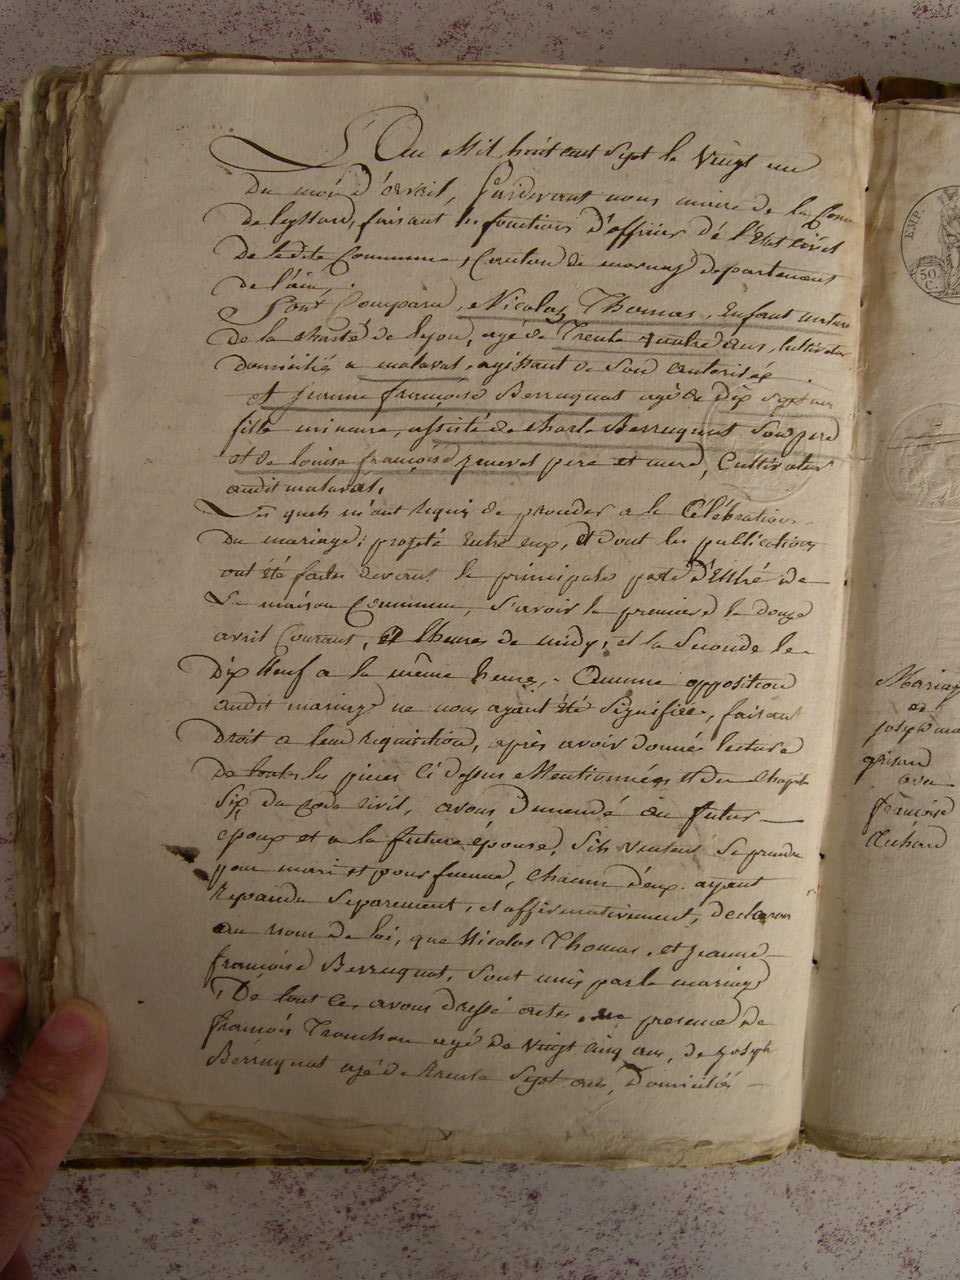 L'An Mil huit cent Sept le Vingt un
Du mois d'avril, Pardevant nous maire de la Comm
de leyssard, faisant les fonctions d'officier dé l'Etat civil
De ladite Commune, Canton de mornay Departement
De l'ain,
Sont Comparu, Nicolas Thomas, Enfant naturel
De la charité de lyon, agé de Trente quatre ans, cultivateur
Domicilié a malaval, agissant de Son autorité
et jeanne françoise Berruquat agé de Dix Sept ans
fille mineure, assisté de charle Berruquat Son pere
et de louise françoise jeneret pere et mere, Cultivateur
audit malaval,
Les quels m'ont Requis de proceder a la Célébration
Du mariage projeté Entre eux, et dont les publications
ont été faites devant la principale porte d'Entré de
La maison Commune, Savoir la premiere le douze
avril Courant, a l'heure de midy, et la Seconde le
Dix Neuf a la même heure, Aucune opposition
audit mariage ne nous ayant été Signifiée, faisant
Droit a leur Requisition, après avoir donné lecture
De toutes les pieces Ci dessus Mentionnées et du chapitre
Six du code Civil, avons Demendé au futur
epoux et a la future épouse, S'ils veulent Se prendre
pour mari et pour femme, chacun d'eux ayant
Repondu Separement, et affirmativement, declarons
au nom de la loi, que Nicolas Thomas, et jeanne
françoise Berruquat, Sont unis par le mariage
De tout ce, avons dressé acte, en presence de
françois Tronchon agé de Vingt Cinq ans, de joseph
Berruquat agé de Trente Sept ans, Domiciliés
EMP.
50
C.
Mariage
de
joseph ma
grisard
avec
françoise